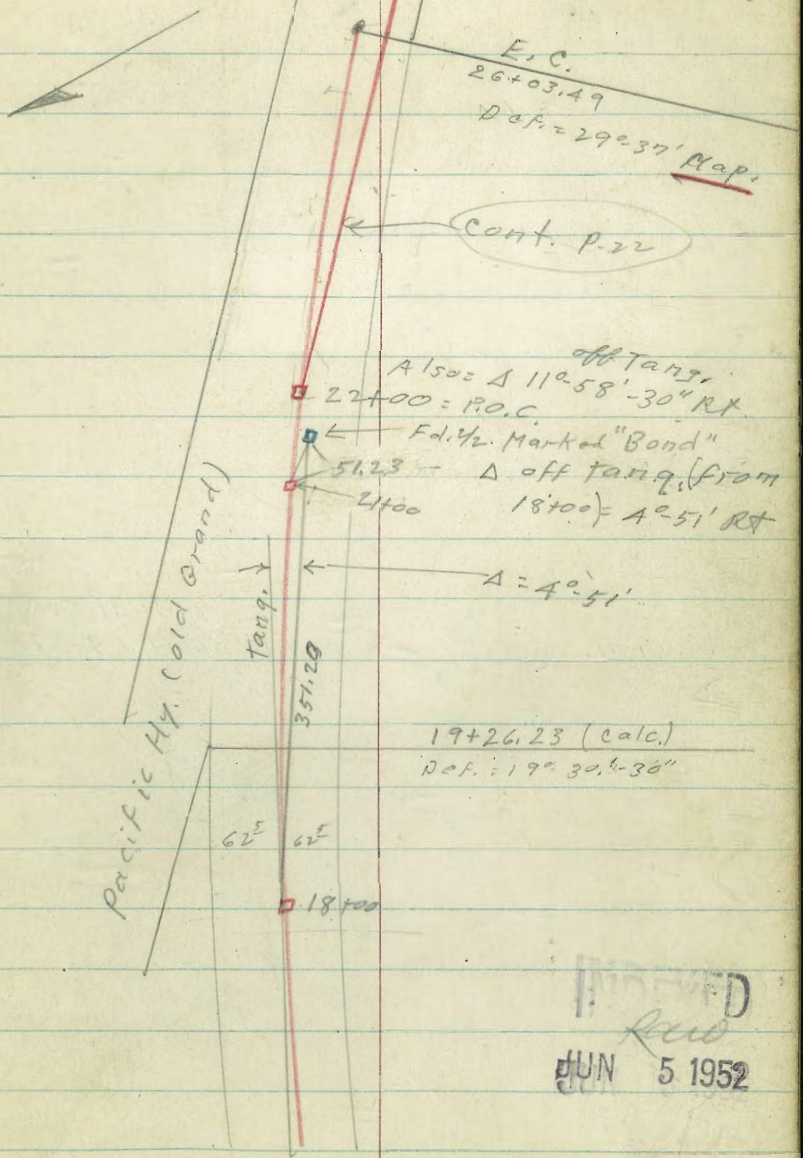 E. C.
26+03.49
Def. = 29°-37' Map.
Cont. P-22
off Tang.
Also = Δ 11°-58'-30" Rt
22+00 = P.O.C.
Fd. 1/2. Marked "Bond"
51.23 - Δ off tang. (from
21+00 18+00) = 4°-51' Rt
Δ = 4°-51'
tang.
351.29
Pacific Hy. (Old Grand)
19+26.23 (Calc.)
Def. = 19°-30'-30"
62⁵ 62⁵
18+00
D
JUN 5 1952